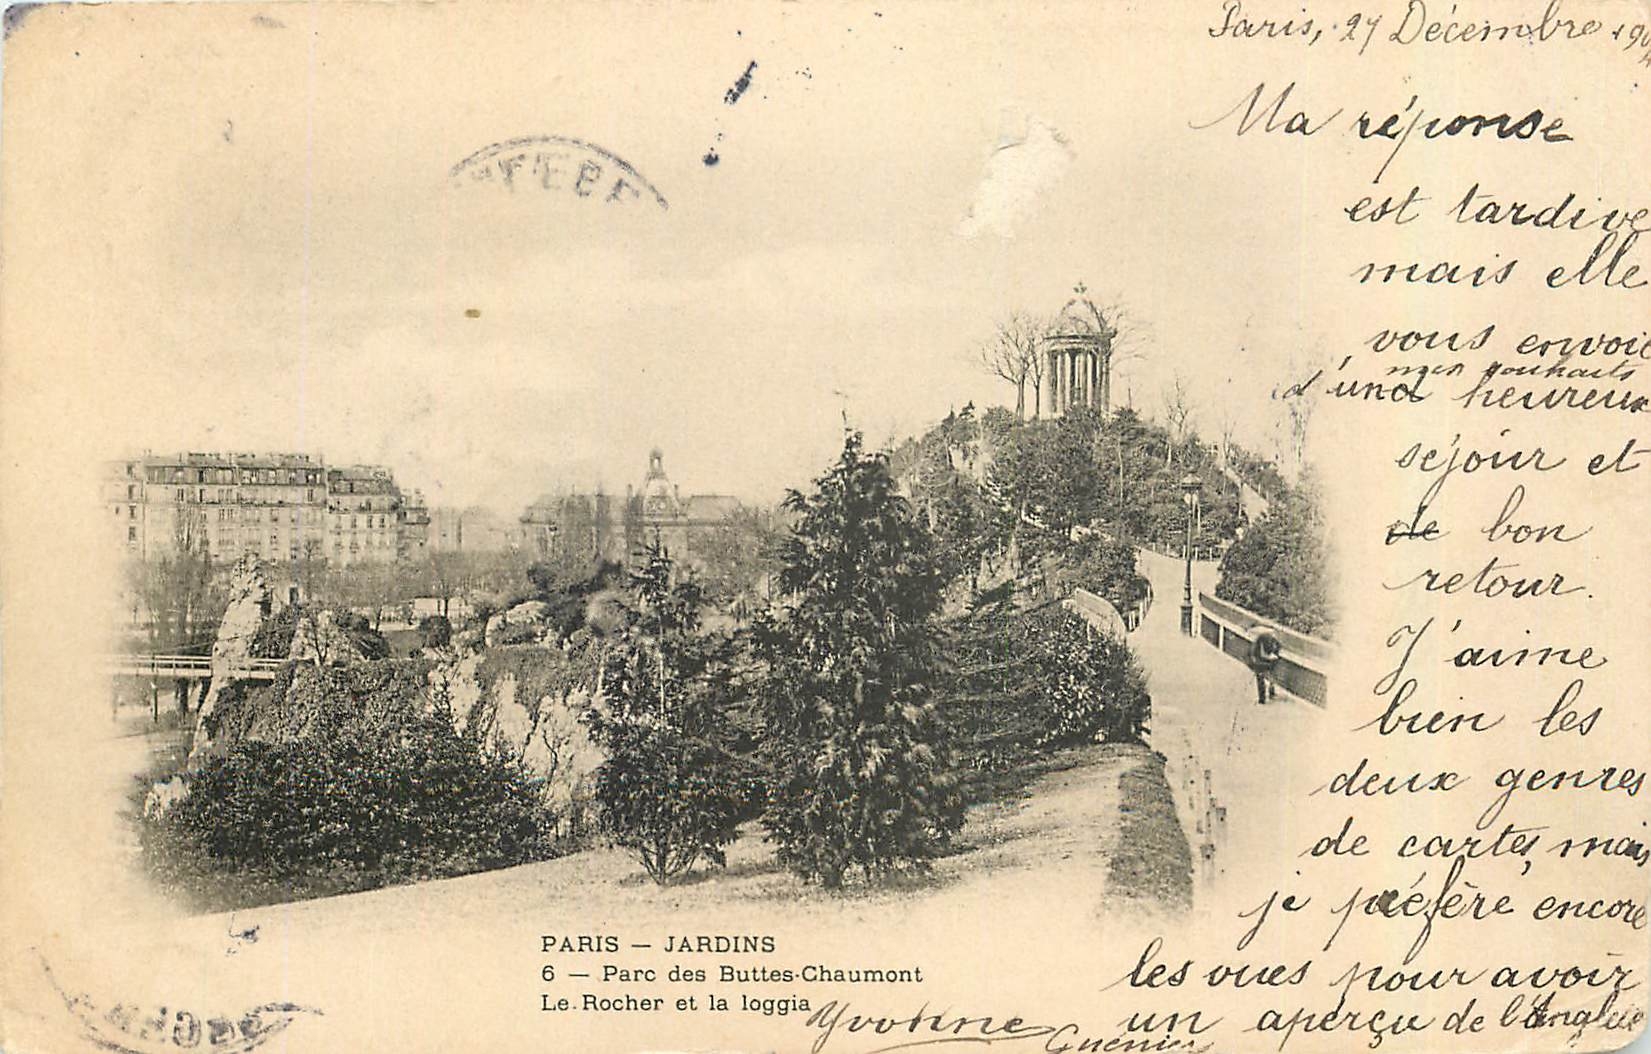 Paris, 27 Décembre
Ma réponse
est tardive
mais elle
vous envoie
mes souhaits
d'un heureux
séjour et
de bon
retour.
J'aime
bien les
deux genres
de cartes, mais
je préfère encore
les vues pour avoir
un aperçu de l'Angle
Yvonne
PARIS — JARDINS
6 — Parc des Buttes-Chaumont
Le Rocher et la loggia